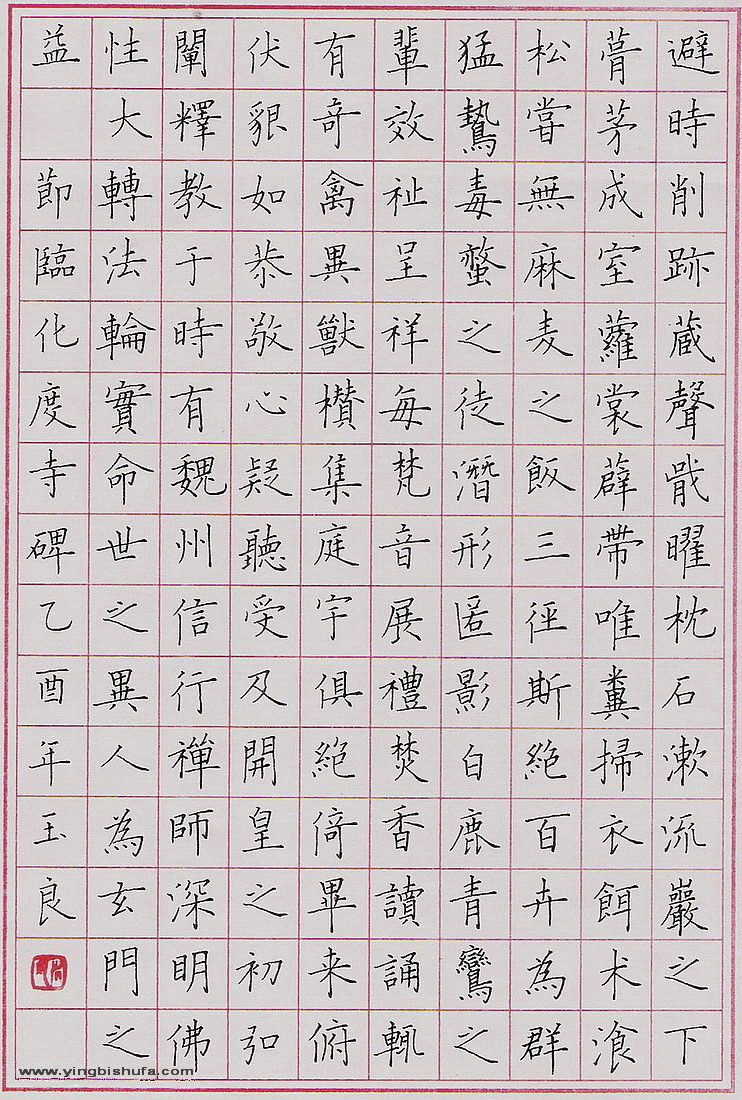 避時削跡蔵聲戢曜枕石漱流巖之下
葺茅成室蘿裳薜帶唯糞掃衣餌术飡
松甞無麻麦之飯三徑斯絶百卉為群
猛鷙毒螫之徒潛形匿影白鹿青鸞之
輩效祉呈祥每梵音展禮焚香讀誦輒
有奇禽異獸欑集庭宇俱絶倚畢来俯
伏貇如恭敬心疑聽受及開皇之初弘
闡釋教于時有魏州信行禪師深明佛
性大轉法輪實命世之異人為玄門之
益 節臨化度寺碑乙酉年玉良
www.yingbishufa.com